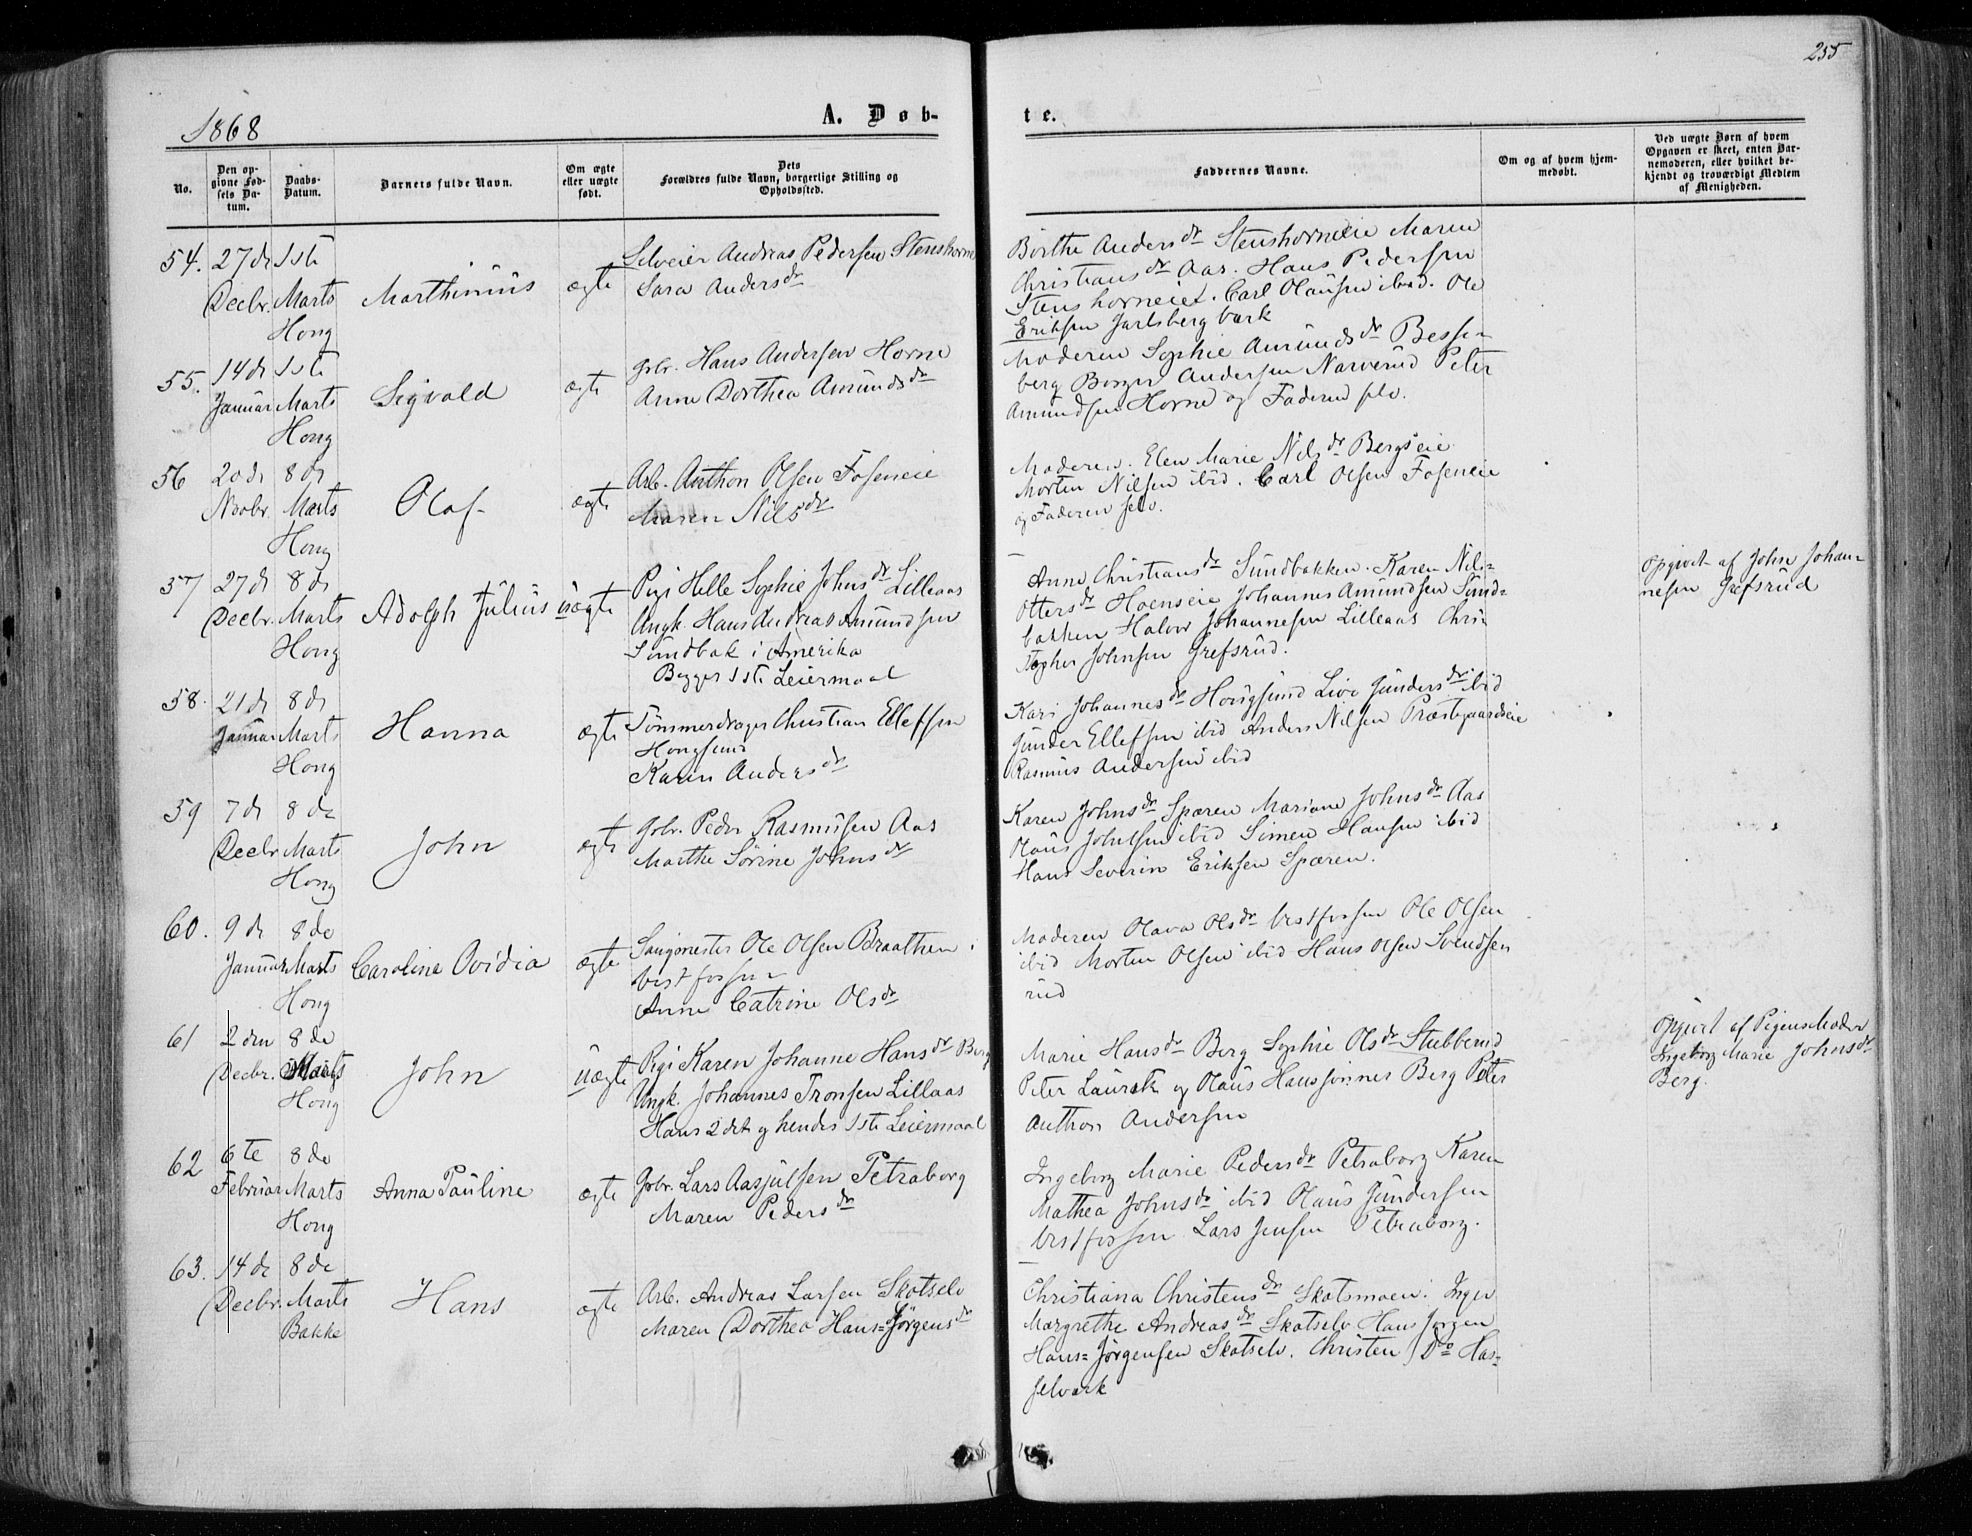 255
1868
A. Døb-
te.
No.
Den op-
givne Fød-
sels Da-
tum.
Daabs-
Datum.
Barnets fulde Navn.
Om ægte
eller uægte
født.
Dets
Forældres fulde Navn, borgerlige Stilling og
Opholdssted.
Faddernes Navne.
Om og af hvem hjem-
medøbt.
Ved uægte Børn af hvem
Opgaven er skeet, enten Bar-
nemoderen, eller hvilket be-
kjendt og troværdigt Medlem
af Menigheden.
54. 27de Decbr. 1ste Marts Houg
Marthinius
ægte
Selveier Andreas Pedersen Stenshorne
Sara Andersdr
Børthe Andersdr Stenshorneie Maren
Christiansdr Aas. Hans Pedersen
Stenshorneiet. Carl Olausen ibid. Ole
Eriksen Jarlsberg Værk
55. 14de Januar 1ste Marts Houg
Sigvald
ægte
Gbr. Hans Andersen Horne
Anne Dorthea Amundsdr
Moderen Sophie Amundsdr Besse-
berg Borger Andersen Narverud Peter
Amundsen Horne og Faderen selv.
56 20de Novbr. 8de Marts Houg
Olaf
ægte
Arb. Anthon Olsen Foseneie
Maren Nilsdr
Moderen. Elen Marie Nilsdr Bergseie
Morten Nilsen ibid. Carl Olsen Foseneie
og Faderen selv.
57 27de Decbr. 8de Marts Houg
Adolph Julius
uægte
Pige Helle Sophie Johnsdr Lilleaas
Ungk. Hans Andreas Amundsen
Sundbak i Amerika
Begges 1ste Leiermaal
Anne Christiansdr Sundbakken. Karen Nils-
Ottersdr Hoenseie Johannes Amundsen Sund-
bakken Halvor Johannesen Lilleaas Chri-
stopher Johnsen Grefsrud.
Opgivet af John Johan-
nesen Grefsrud
58. 21de Januar 8de Marts Houg
Hanna
ægte
Tømmerdrager Christian Ellefsen
Hougsund
Karen Andersdr
Kari Johannesdr Hougsund Live Gundersdr ibid
Gunder Ellefsen ibid Anders Nilsen Præstegaardseie
Rasmus Andersen ibid
59 7de Decbr 8de Marts Houg
John
ægte
Gbr. Peder Rasmusen Aas
Marthe Sørine Johnsdr
Karen Johnsdr Spæren Mariane Johnsdr Aas
Olaus Johnsen ibid Simen Hansen ibid
Hans Severin Eriksen Spæren.
60. 9de Januar 8de Marts Houg
Caroline Ovidia
ægte
Saugmester Ole Olsen Braathen i
Vestfossen
Anne Catrine Olsdr
Moderen Olava Olsdr Vestfossen Ole Olsen
ibid Morten Olsen ibid Hans Olsen Svendsen
rud
61 2den Decbr. 8de Marts Houg
John
uægte
Pige Karen Johanne Hansdr Berg
Ungk. Johannes Tronsen Lillaas
Hans 2det og hendes 1ste Leiermaal
Marie Hansdr Berg Sophie Olsdr Stubberud
Peter Laurits og Olaus Hanssønner Berg Peter
Anthon Andersen
Opgivet af Pigens Moder
Ingeborg Marie Johnsdr
Berg.
62 6te Februar 8de Marts Houg
Anna Pauline
ægte
Gbr. Lars Aasjulsen Petraborg
Maren Pedersdr
Ingeborg Marie Pedersdr Petraborg Karen
Mathea Johnsdr ibid Olaus Gundersen
Vestfossen Lars Jensen Petraborg.
63. 14de Decbr. 8de Marts Bakke
Hans
ægte
Arb. Andreas Larsen Skotselv
Maren Dorthea Hans=Jørgensdr
Christiana Christensdr Skotsmoen. Inger
Margrethe Andreasdr Skotselv Hans Jørgen
Hans=Jørgensen Skotselv. Christen Do Has-
selværk